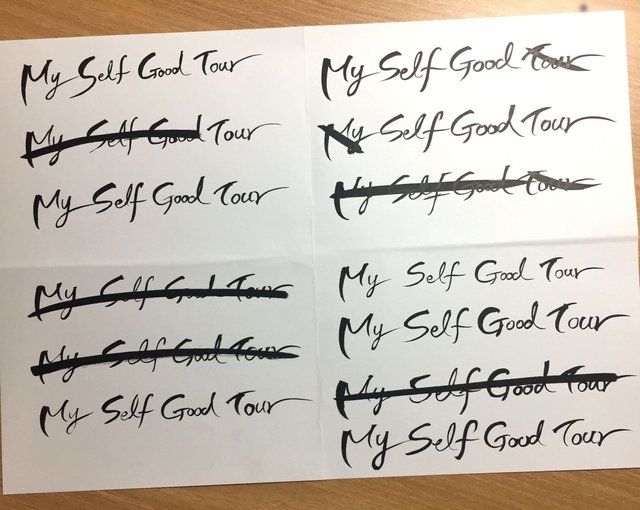 My Self Good Tour
My Self Good Tour
My Self Good Tour
My Self Good Tour
My Self Good Tour
My Self Good Tour
My Self Good Tour
My Self Good Tour
My Self Good Tour
My Self Good Tour
My Self Good Tour
My Self Good Tour
My Self Good Tour